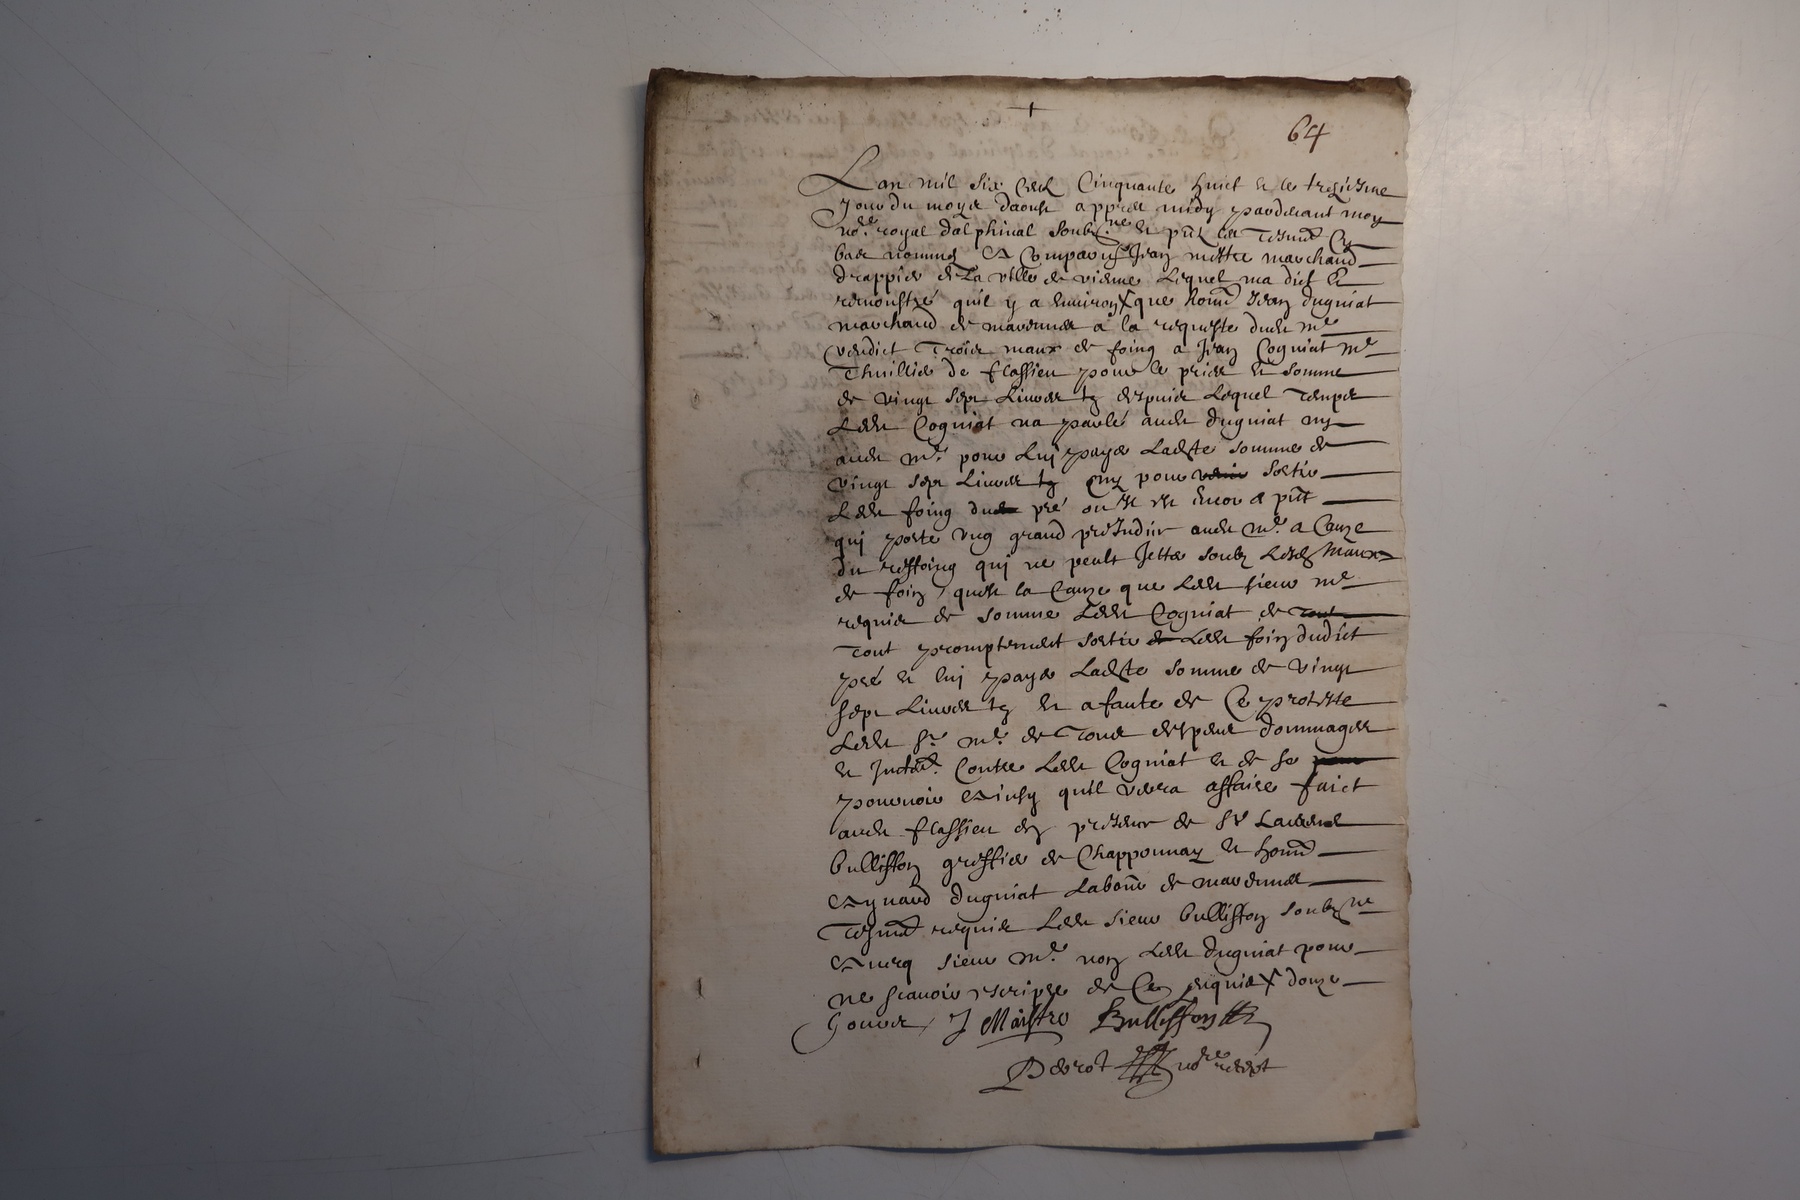 64
Lan mil six centz Cinquante huict et le treziesme
Jour du moys daoust appres midy pardevant moy
no.re royal dalphinal soubz.ne et pnt les tesmd Cy
bas nommes A Comparu Jean mestre marchand
drappier de La ville de vienne Lequel ma dict Et
remonstré quil y a environ X que honn Jean duguiat
marchand de marennes a la requeste dudt me
vendict Trois maux de foing a Jean Cogniat me
Thuillier de flassieu pour le pris et somme
de vingt sept Livres tz despuis Lequel Temps
Ledt Cogniat na parlé audt duguiat ny
audt me pour Luy payer Ladte somme de
vingt sept Livres tz Ny pour venir sortir
Ledt foing dudt pré ou Il est encor a pnt
qui porte ung grand preiudice audt me a Cauze
du reffoing qui ne peult Jetter soubz Lesdz Maux
de foin / quest la Cauze que Ledt sieur me
requis de sommer Ledt Cogniat de tout
Tout promptement sortir de Ledt foin dudict
pré et luy payer Ladte somme de vingt
sept Livres tz et a faute de Ce proteste
Ledt sr me de Tous despens dommages
et Interes. Contre Ledt Cogniat et de se pour
pourvoir Ainsy quil verra affaire faict
audt flassieu en presence de sr Laurens
bullisson greffier de Chapponnay et honn
Aynard duguiat Labour de marennes
Tesmd requis Ledt sieur bullisson soubz ne
Avecq sieur me non Ledt duguiat pour
ne scavoir escripre de Ce enquis X douze
Jours / J Maistre Bullisson
Perrot no.re recept